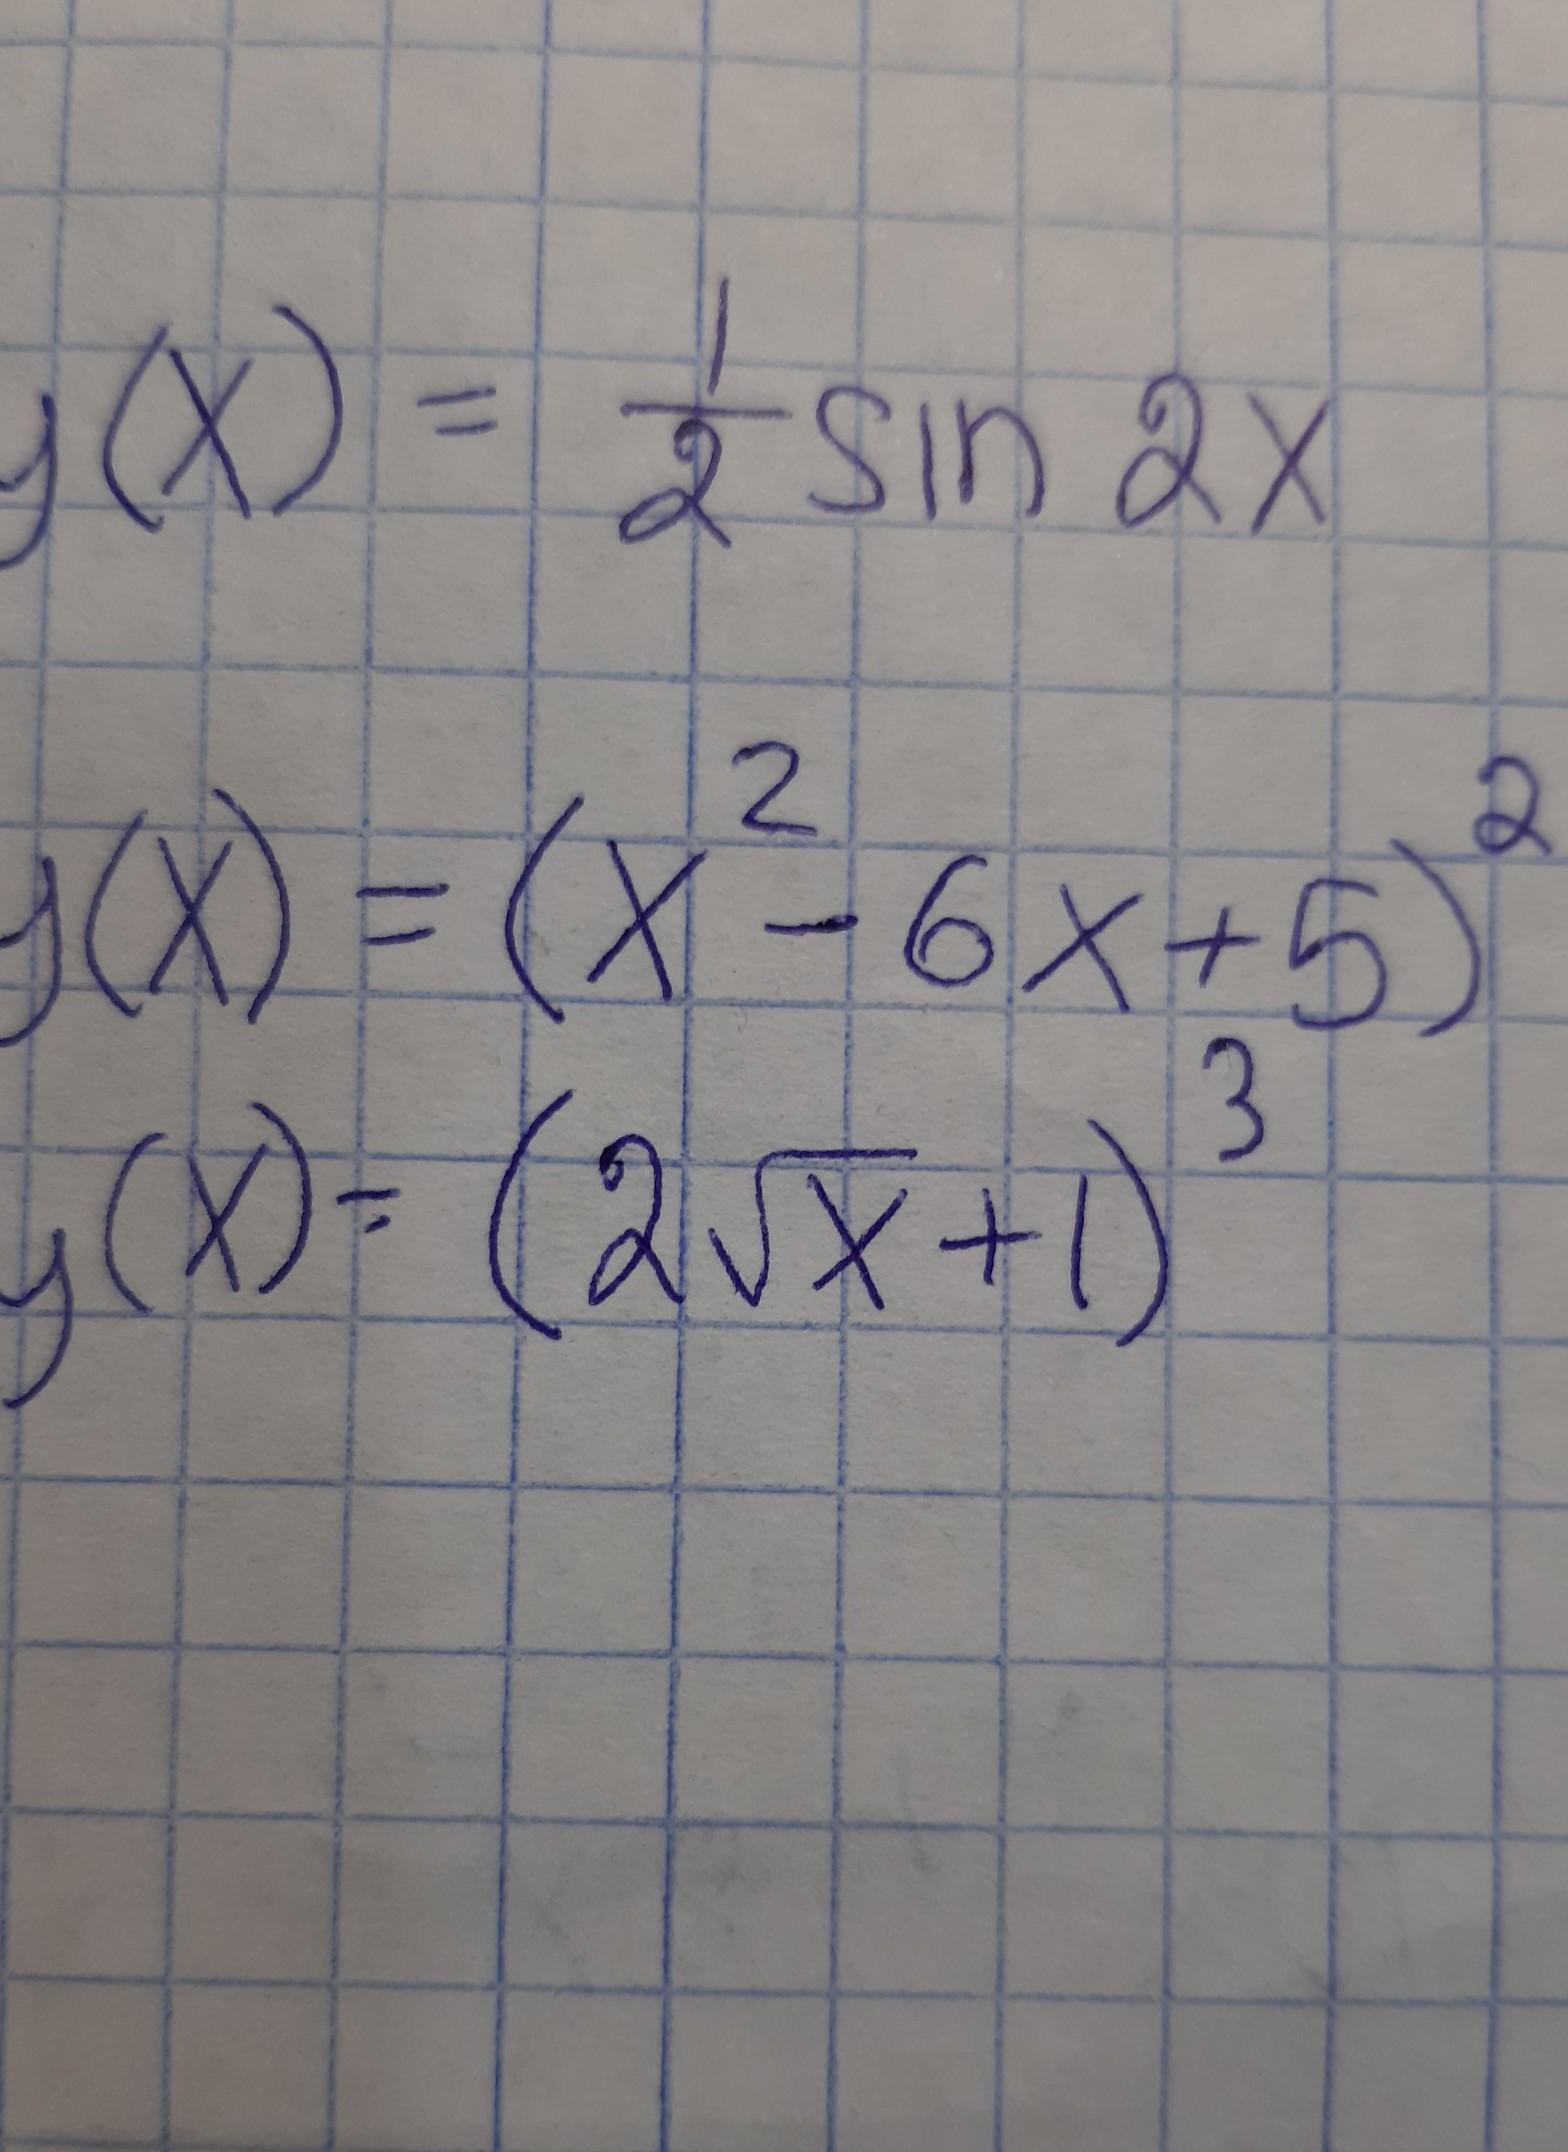 y(x) = 1/2 sin 2x
y(x) = (x² - 6x + 5)²
y(x) = (2√x + 1)³